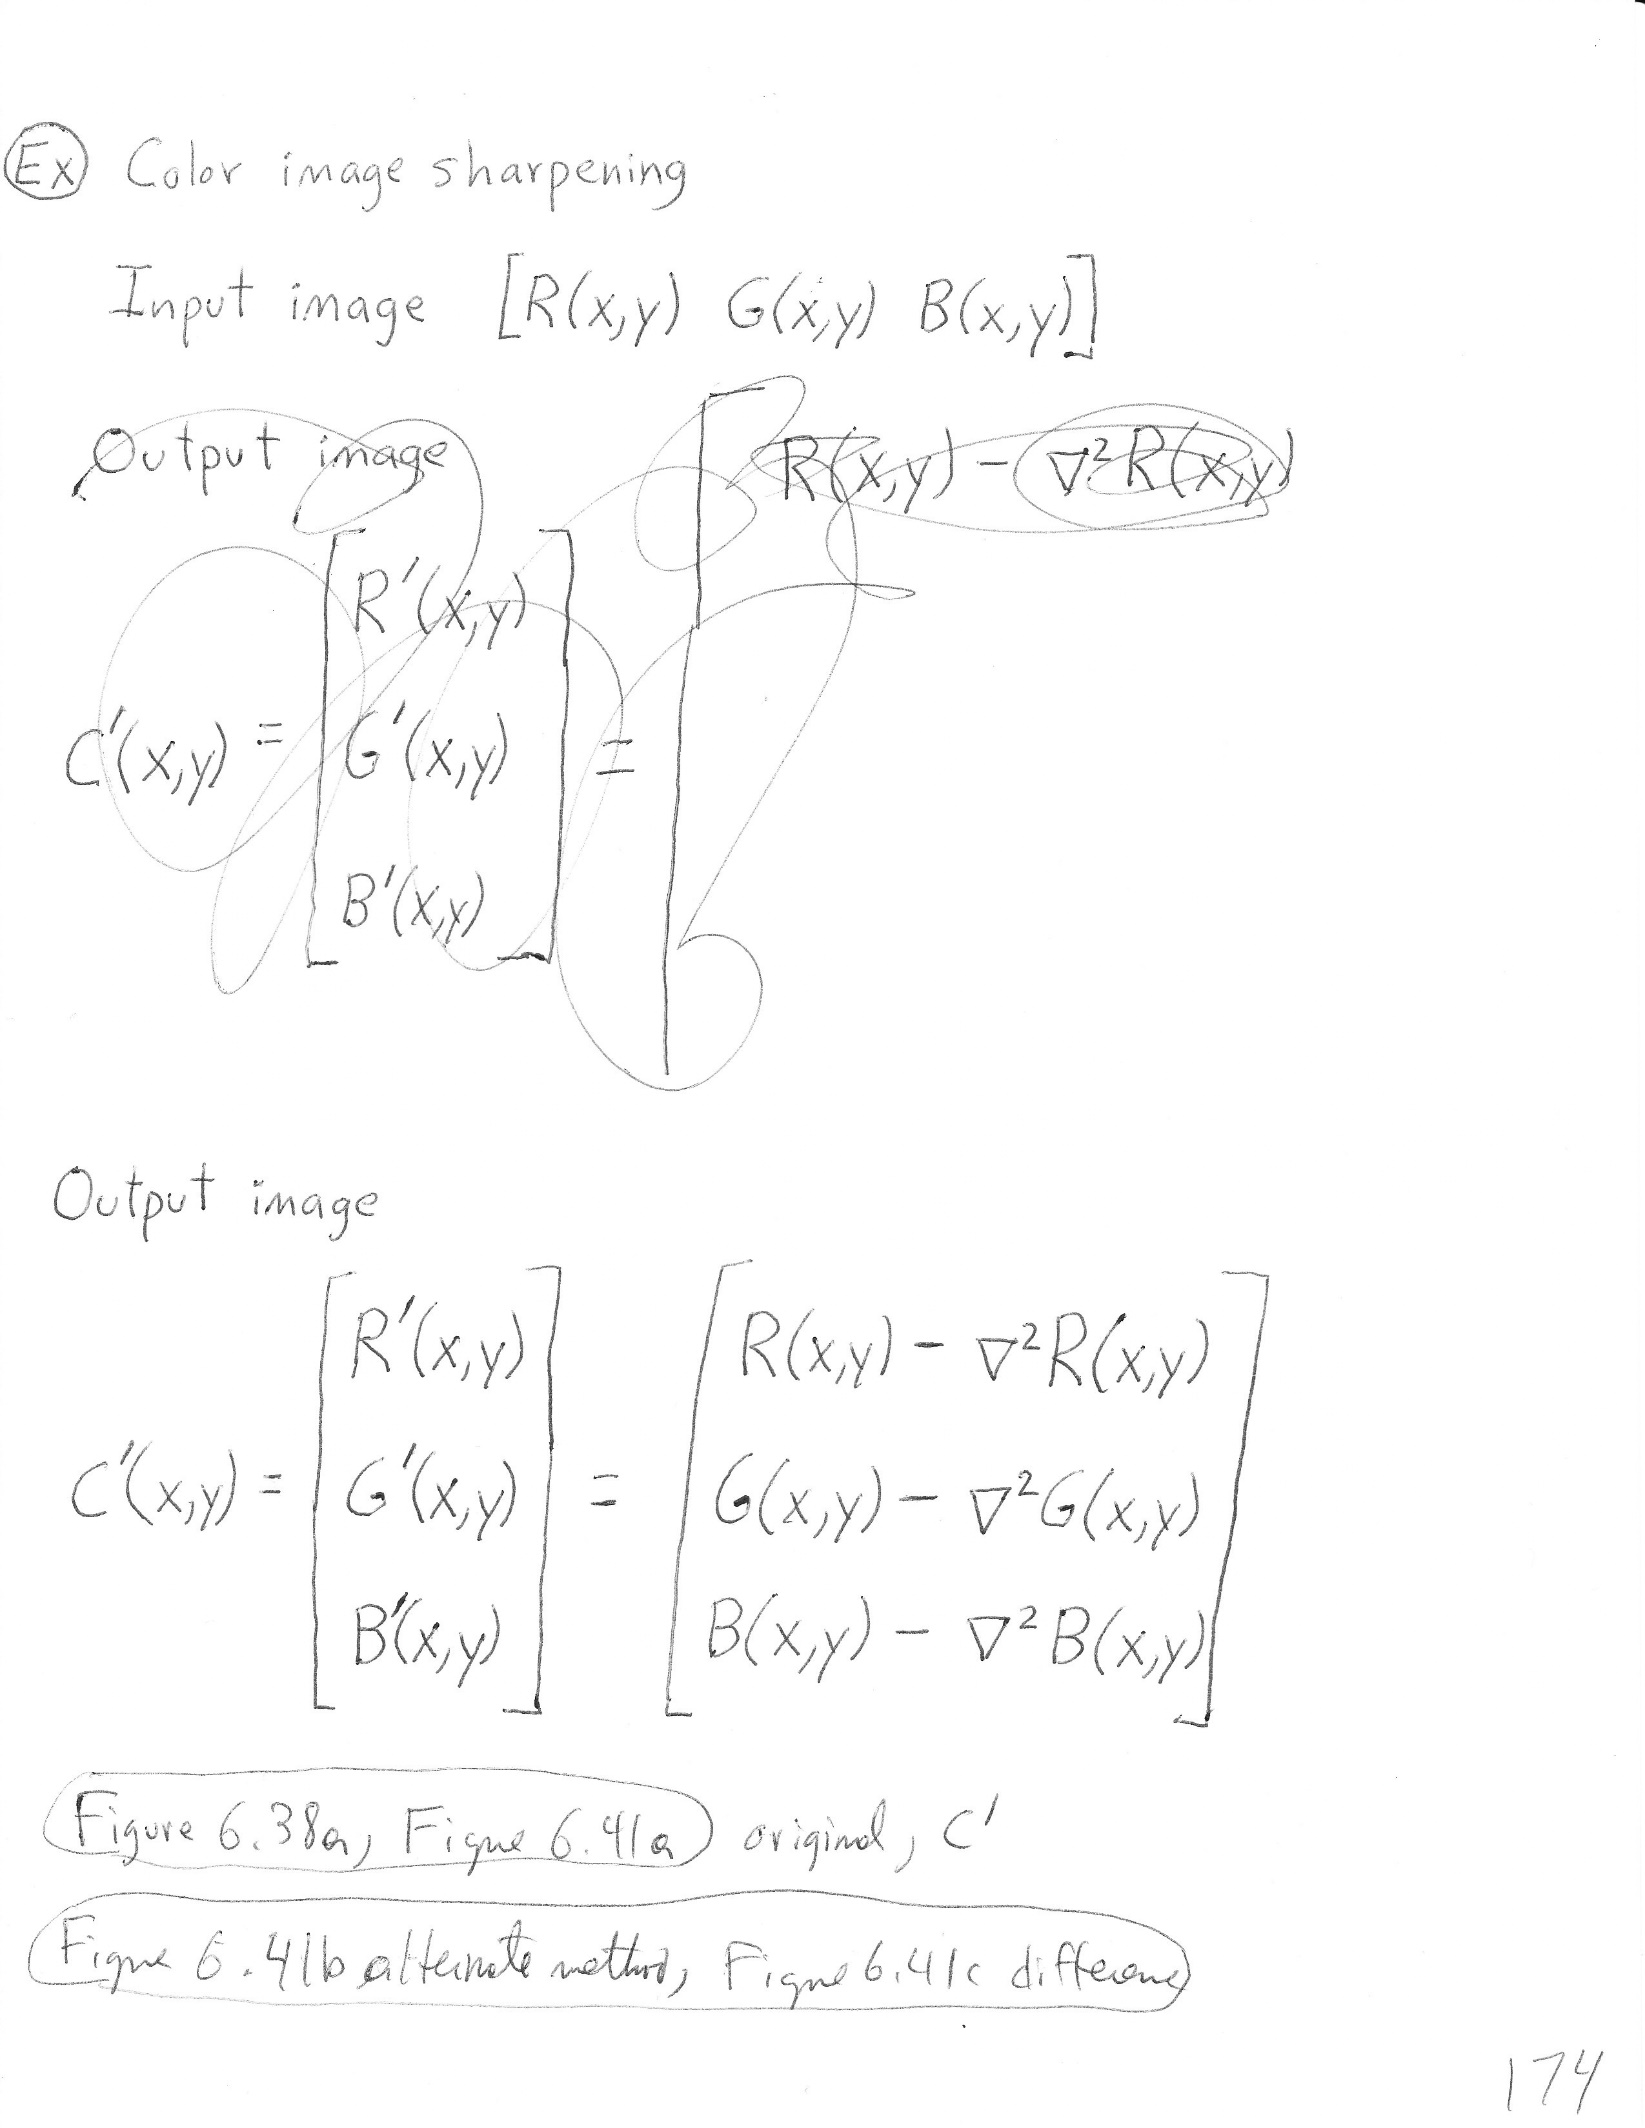 Ex Color image sharpening
Input image [R(x,y) G(x,y) B(x,y)]
Output image
R(x,y) − ∇²R(x,y)
R'(x,y)
C'(x,y) = G'(x,y) =
B'(x,y)
Output image
R'(x,y) R(x,y) − ∇²R(x,y)
C'(x,y) = G'(x,y) = G(x,y) − ∇²G(x,y)
B'(x,y) B(x,y) − ∇²B(x,y)
Figure 6.38a, Figure 6.41a original, C'
Figure 6.41b alternate method, Figure 6.41c difference
174